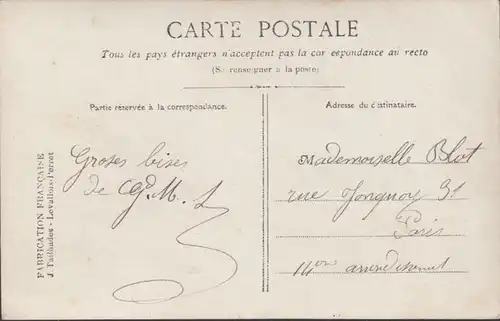 CARTE POSTALE
Tous les pays étrangers n'acceptent pas la cor espondance au recto
(S. renseigner à la poste)
Partie réservée à la correspondance.
Adresse du d stinataire.
Groses bises
de G. M. L
Mademoiselle Blot
rue Jonquoy 31
Paris
14em arrondissement
FABRICATION FRANÇAISE
J. Tailhades - Levallois-Perret